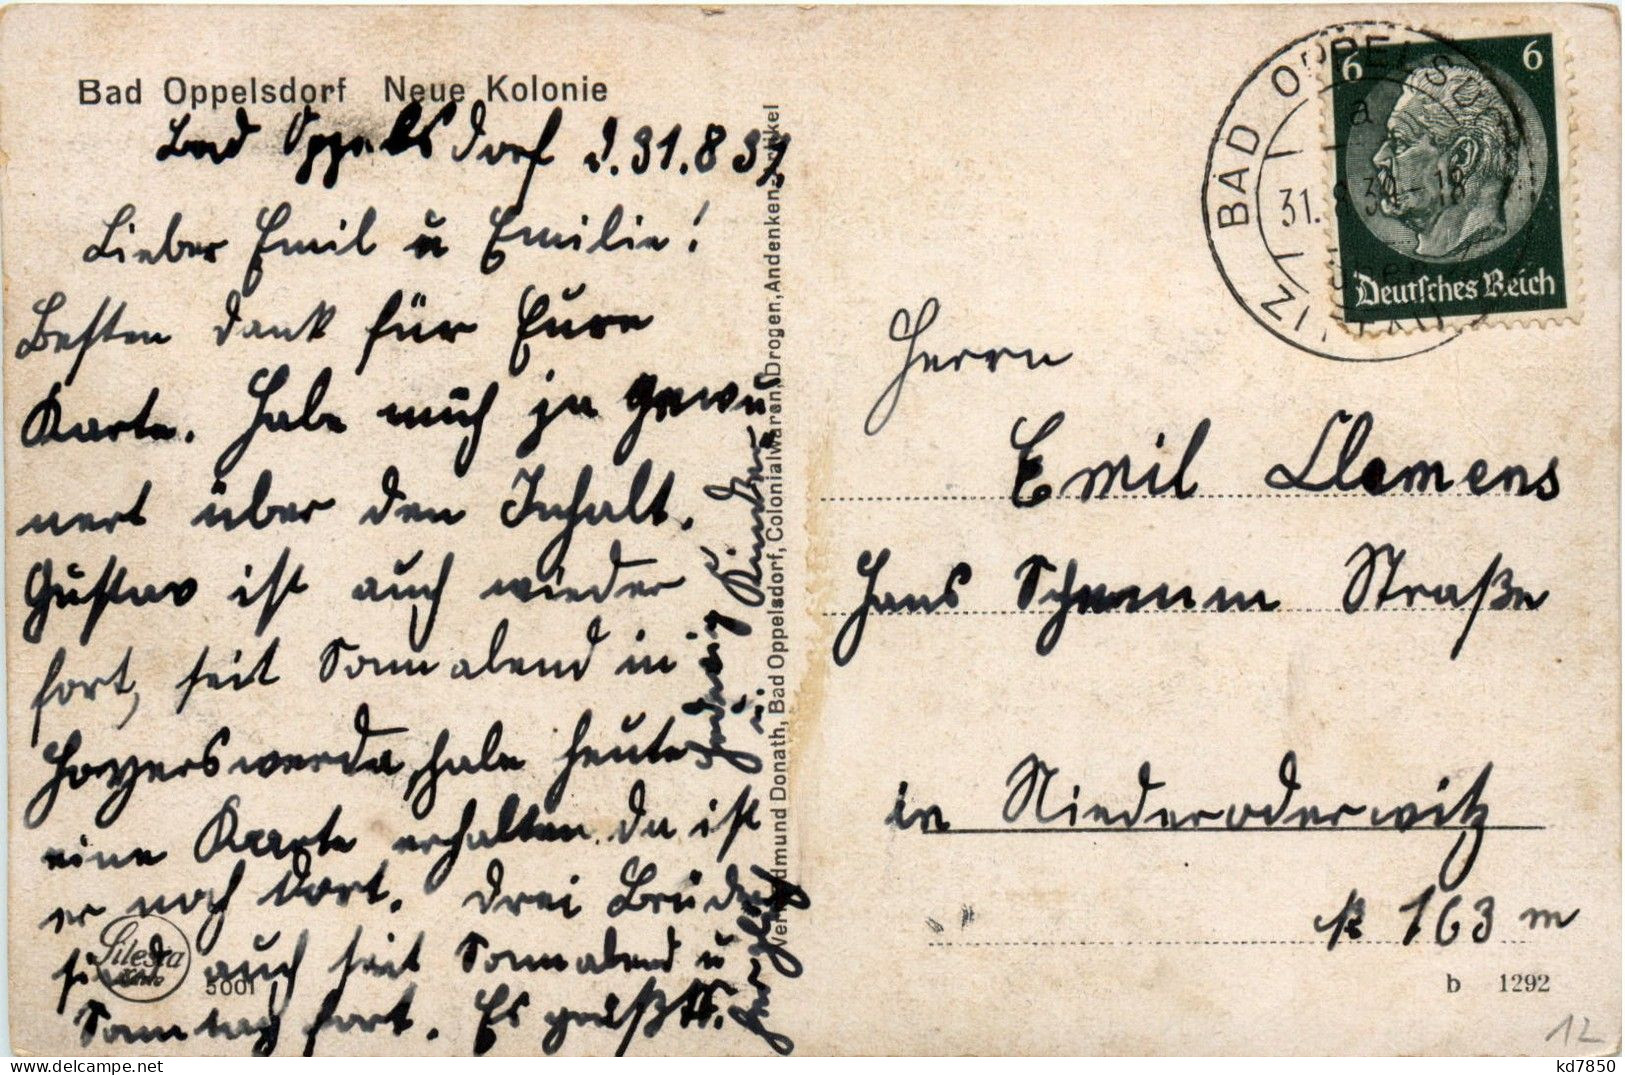 Bad Oppelsdorf Neue Kolonie
Bad Oppelsdorf d. 31.8.39.
Lieber Emil u Emilie!
Besten Dank für Eure
Karte. Habe mich ja gewu
nert über den Inhalt.
Gustav ist auch wieder
fort, seit Sonnabend in
Hoyerswerda, habe heute
eine Karte erhalten da ist
er noch dort. Drei Brüder
sind auch seit Sonnabend u
Sonntag fort. Es grüßt
herzlich
Hedwig
u. Kinder
Silesia
5001
Verl. Edmund Donath, Bad Oppelsdorf, Colonialwaren, Drogen, Andenken-Artikel
BAD OPPELSDORF
a
31.8.39-18
6 6
Deutsches Reich
Herrn
Emil Clemens
Hans Schemm Straße
in Niederoderwitz
163 m
b 1292
12
kd7850